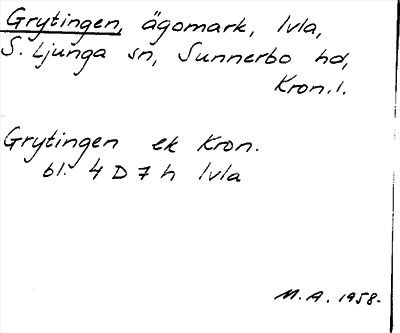 Grytingen, ägomark, lvla,
S. Ljunga sn, Sunnerbo hd,
Kron. l.
Grytingen ek Kron.
bl. 4 D 7 h lvla
M. A. 1958.